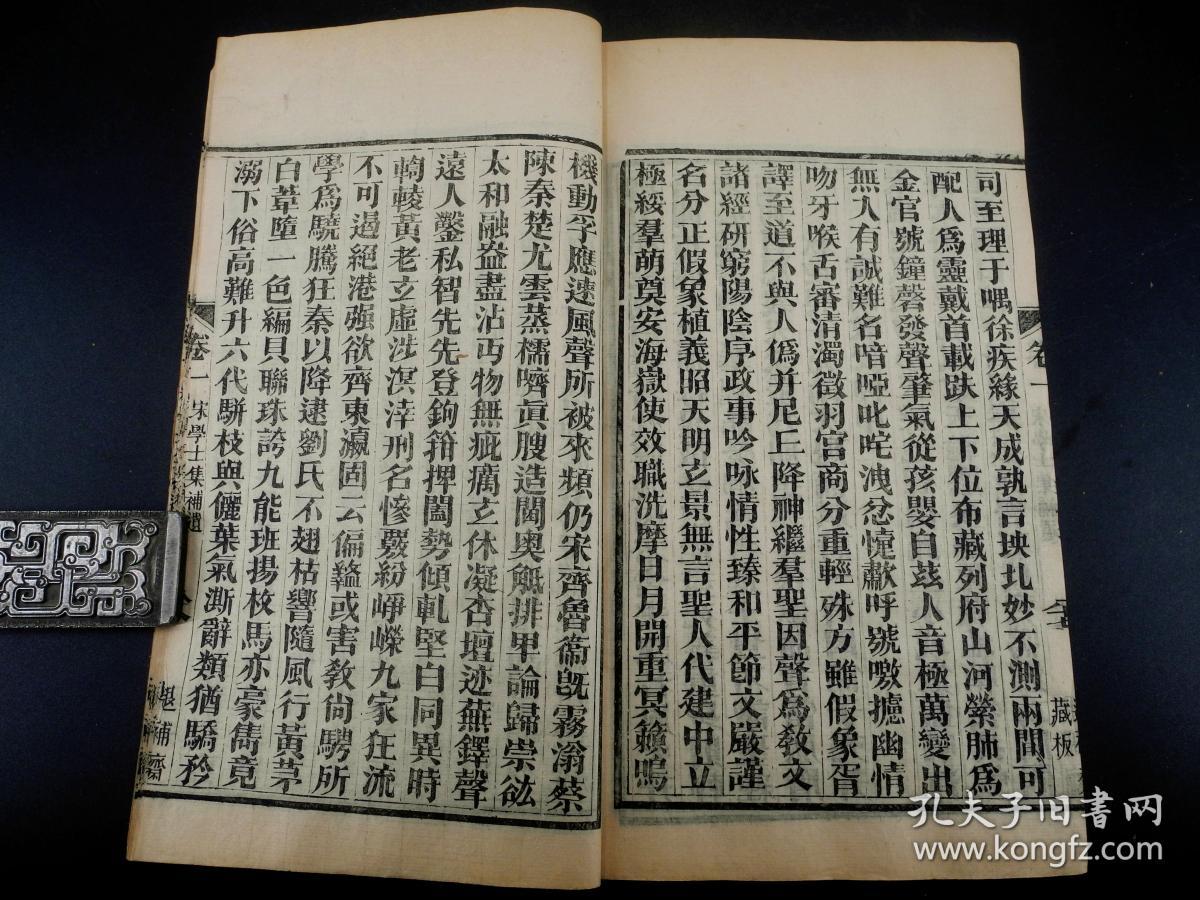 司至理于喁徐疾緣天成孰言坱圠妙不測兩間可
配人爲靈戴首載趺上下位布藏列府山河榮肺爲
金官號鐘磬發聲肇氣從孩嬰自茲人音極萬變出
無入有誠難名喑啞叱咤洩忿懥歗呼號噭攄幽情
吻牙喉舌審清濁徵羽宮商分重輕殊方雖假象胥
譯至道不與人僞并尼丘降神繼羣聖因聲爲敎文
諸經研窮陽陰序政事吟咏情性臻和平節文嚴謹
名分正假象植義昭天明玄景無言聖人代建中立
極綏羣萌奠安海嶽使效職洗摩日月開重冥籟鳴
機動孚應速風聲所被來類仍宋齊魯衞旣霧滃蔡
陳秦楚尤雲蒸檽嚌眞腴造閫奧觝排甲論歸崇竑
太和融盎盡沾丐物無疵癘玄休凝杏壇迹蕪鐸聲
遠人鑿私智先先登鉤箝捭闔勢傾軋堅白同異時
轇輵黃老玄虛涉溟涬刑名慘覈紛崢嶸九家狂流
不可遏絕港强欲齊東瀛固云偏盭或害敎尙騁所
學爲驍騰狂秦以降逮劉氏不翅枯響隨風行黃茅
白葦墮一色編貝聯珠誇九能班揚枚馬亦豪雋竟
溺下俗高難升六代駢枝與儷葉氣澌辭類猶驕矜
卷一 宋學士集補遺
卷一
藏板
孔夫子旧书网
www.kongfz.com